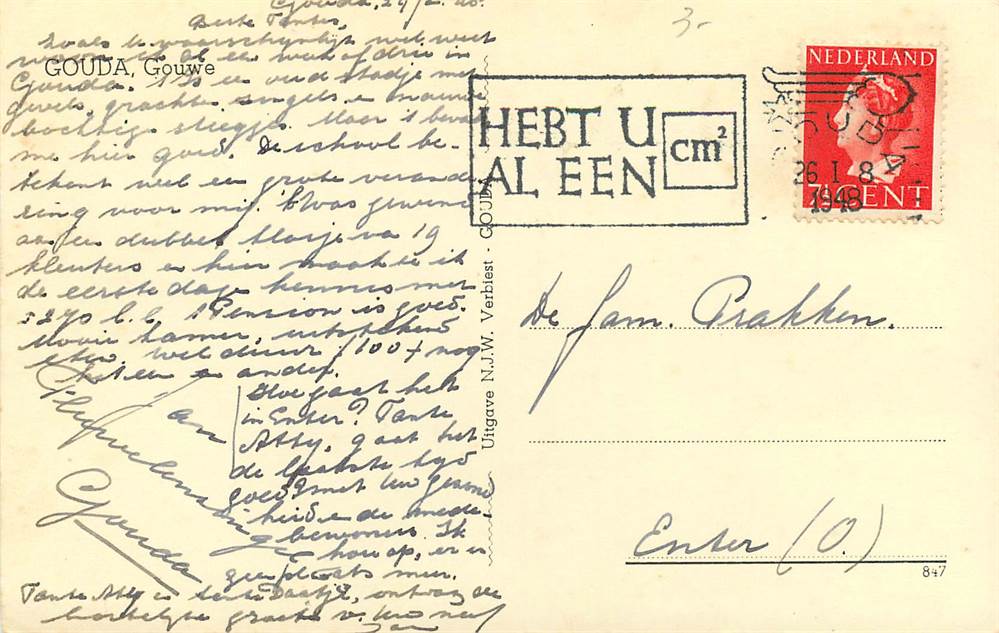 Gouda, 24/1.48.
Beste Tantes,
Zoals U waarschijnlijk wel weet
woon ik al een week of drie in
GOUDA, Gouwe
Gouda. 't Is een oud stadje met
gevels, grachten, singels en nauwe
bochtige steegjes. Maar 't bevalt
me hier goed. De school be-
tekent wel een grote verande
ring voor mij. 'k Was gewend
aan een dubbel klasje van 19
kleuters en hier maakte ik
de eerste dag kennis met
270 l.l. Pension is goed.
Mooie kamer, uitstekend
eten, wel duur f 100 + nog
het een en ander.
Hoe gaat het
in Enter? Tante
Atty, gaat het
de laatste tijd
goed met Uw gezond
heid en de mede-
bewoners. Ik
hou op, er is
geen plaats meer.
Jan
Fluwelensingel
Gouda
Tante Atty en tante Daatje, ontvang de
hartelijke groeten v. Uw neef
Jan
Uitgave N.J.W. Verbiest - GOUDA
3-
HEBT U
AL EEN
cm²
NEDERLAND
GOUDA
26 I 8
1948
CENT
De Fam. Prakken.
Enter (O.)
847